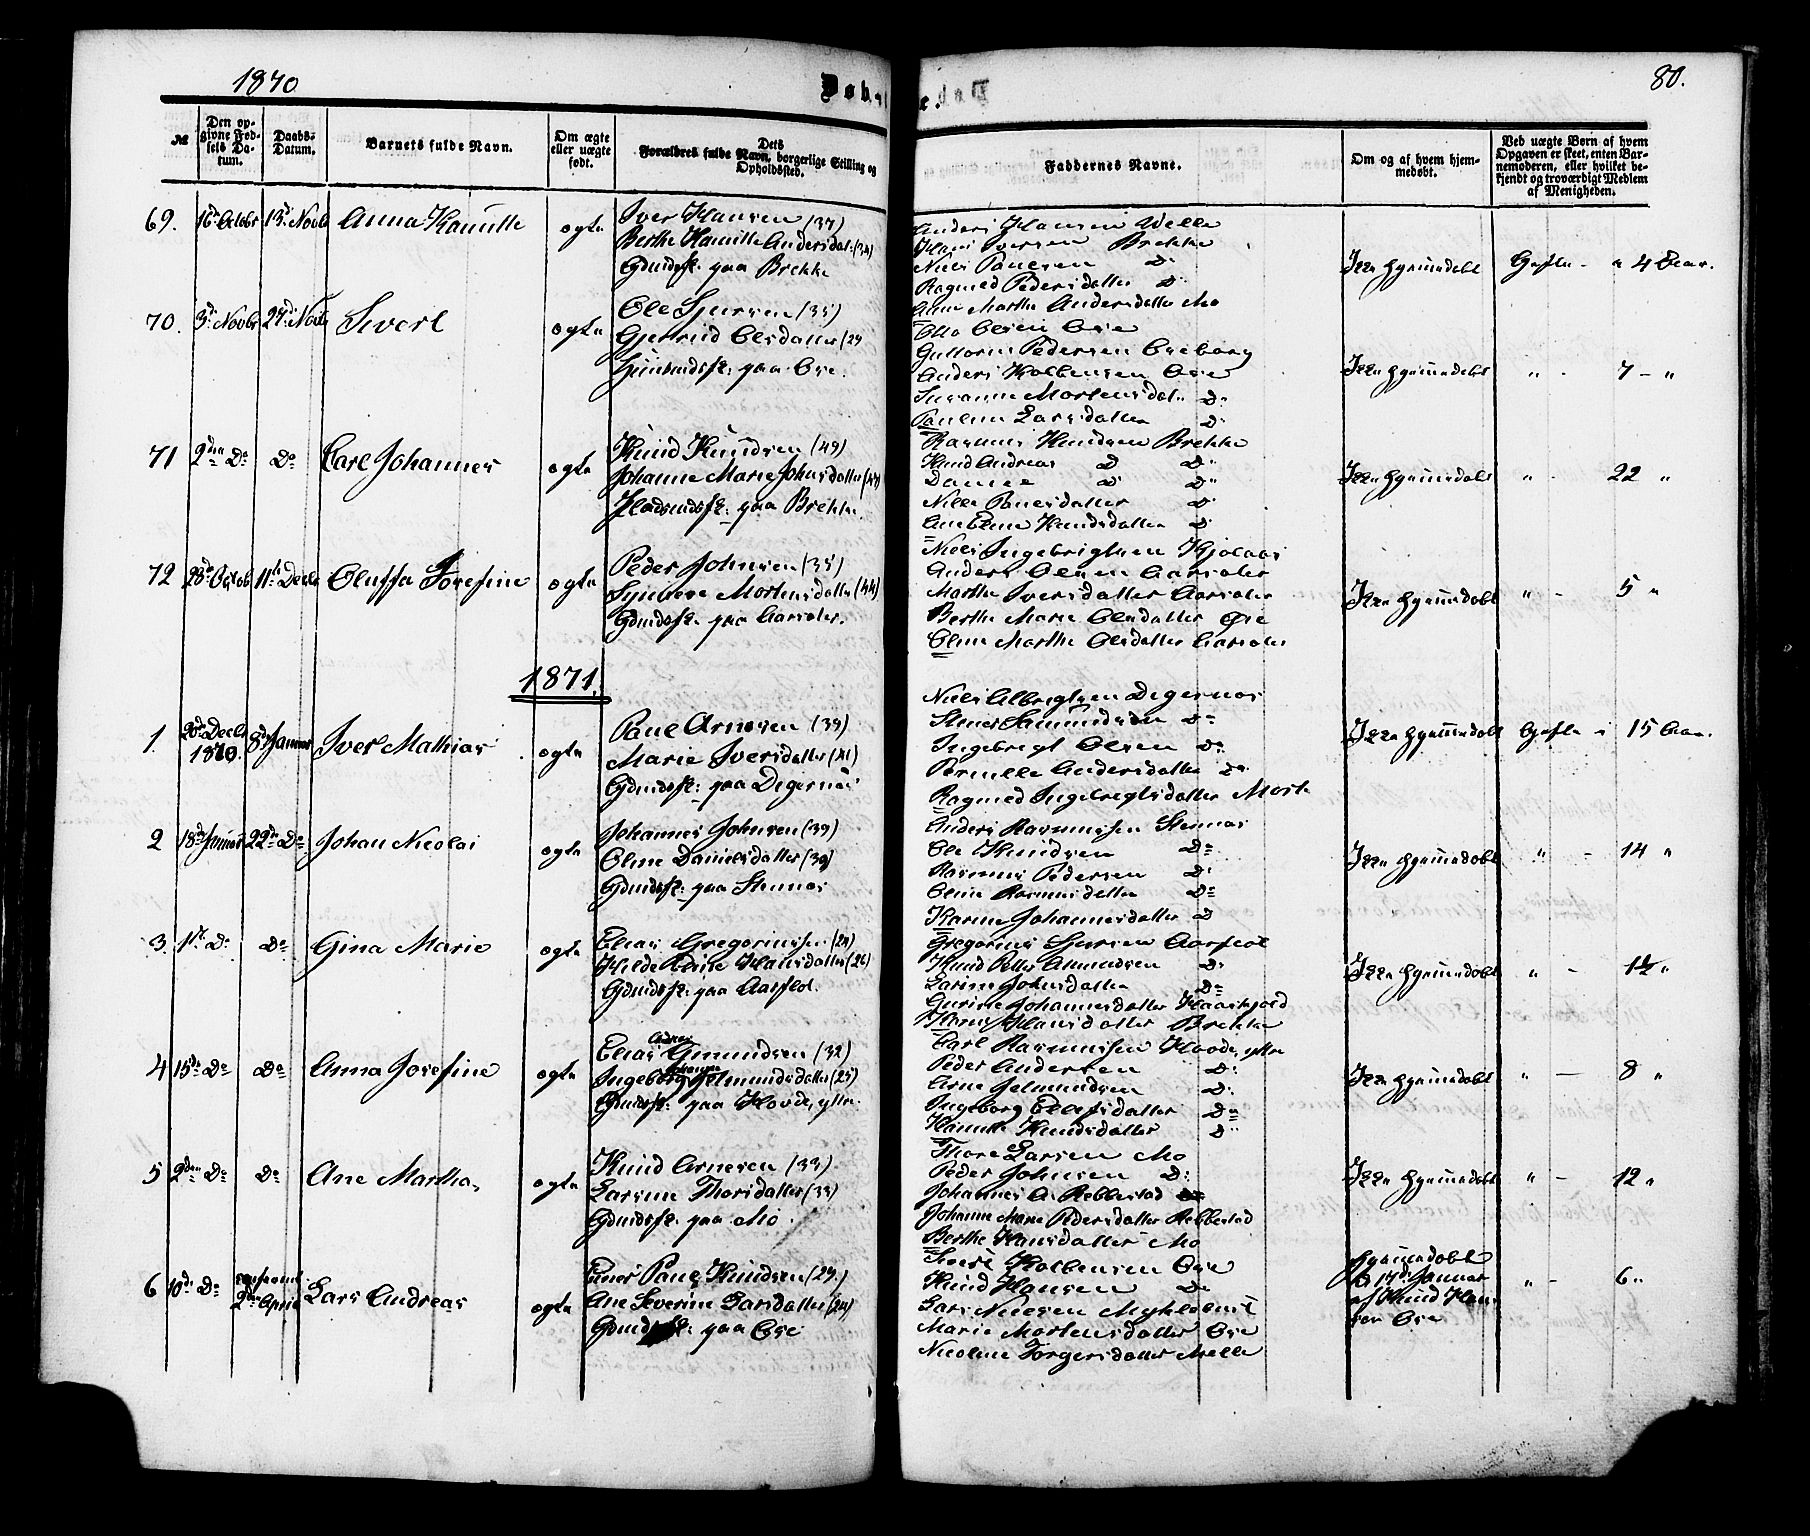 1870
80.
Døbte.
№
Den opgivne Fødsels Datum.
Daabs-Datum.
Barnets fulde Navn.
Om ægte eller uægte født.
Dets Forældres fulde Navn, borgerlige Stilling og Opholdssted.
Faddernes Navne.
Om og af hvem hjemmedøbt.
Ved uægte Børn af hvem Opgaven er skeet, enten Barnemoderen, eller hvilket bekjendt og troværdigt Medlem af Menigheden.
69. 16de Octobr 13de Novbr Anna Hamille ægte
Iver Hansen (37)
Berthe Hamille Andersdatter
Gbmdsf. paa Brekke
Anders Hansen Welle
Hans Iversen Brekke
Niels Paulsen Do
Ragned Pedersdatter Do
Anne Marthe Andersdatter Mo
Ikke hjemmedøbt
Gifte - 4 Aar.
70. 3de Novbr 27de Novbr Sivert ægte
Ole Sjursen (35)
Gjertrud Olsdatter (29
Huusmdsf. paa Øse.
Otto Olsen Øse
Guttorm Pedersen Øseborg
Anders Kolbensen Øse
Susanne Mortensdatter Do
Pauline Larsdatter Do
Ikke hjemmedøbt
" - 7 - "
71 2den Do Do Carl Johannes ægte
Knud Knudsen (49)
Johanne Marie Johnsdatter
Pladsmdsf. paa Brekke.
Rasmus Knudsen Brekke
Knud Andreas Do Do
Daniel Do Do
Nille Paulsdatter Do
Ane Oline Knudsdatter Do
Ikke hjemmedøbt
" - 22 "
72 28de Octob 11te Decbr Oluffa Josefine ægte
Peder Johnsen (35)
Synneve Mortensdatter (44)
Gbmdsf. paa Aarsæter.
Niels Ingebrigtsen Kjølaas
Anders Olsen Aarsæter
Marthe Iversdatter Aarsæter
Berthe Marie Olsdatter Øse
Oline Marthe Olsdatter Aarsæter
Ikke hjemmedøbt
" - 5 "
1871.
1. Decbr 1870. 8de Januar Iver Mathias ægte
Paul Arnesen (39)
Marie Iversdatter
Gbmdsf. paa Digernæs
Niels Albrigtsen Digernæs
Stener Samundsen Do
Ingebrigt Olsen Do
Pernille Andersdatter Do
Ragned Ingebrigtsdatter Mork
Ikke hjemmedøbt
Gifte i 15 Aar.
2 18de Januar 22de Do Johan Nicolai ægte
Johannes Johnsen (39)
Oline Danielsdatter (39)
Gbmdsf. paa Stennes
Anders Rasmussen Stennes
Ole Knudsen Do
Rasmus Pedersen Do
Oline Rasmusdatter Do
Karine Johannesdatter Do
Ikke hjemmedøbt
" - 14 "
3. 1ste Do Do Gina Marie ægte
Elias Gregoriussen
Hilde Oline Hansdatter (26)
Gbmdsf. paa Aarflot.
Gregorius Sjursen Aarflot
Knud Petter Amundsen Do
Larine Johnsdatter Do
Gurine Johannesdatter Haaskjold
Hansdatter Brekke
Ikke hjemmedøbt
" -
4 15de Do Do Anna Josefine ægte
Elias Gmundsen (32)
Ingeborg Jetmundsdatter (25)
Gbmdsf. paa Hovde, ytre.
Carl Rasmussen Hovde, ytre
Peder Andersen Do
Arne Jetmundsen Do
Ingeborg Elefsdatter Do
Hamille Knudsdatter Do
Ikke hjemmedøbt
" - 8 "
5 2den Do Do Ane Martha, ægte
Knud Arnesen (33)
Larsine Thorsdatter (33)
Gbmdsf. paa Mo.
Thore Larsen Mo
Peder Johnsen Do
Johannes A. Rebbestad
Johanne Marie Pedersdatter Rebbestad
Berthe Hansdatter Mo
Ikke hjemmedøbt
" - 12 "
6 10de Do 2den April Lars Andreas ægte
Paul Knudsen (29.)
Ane Severine Larsdatter (24)
Gbmdsf. paa Øse
Sivert Kolbensen Øse
Knud Hansen Do
Lars Nielsen Myklebust
Marie Mortensdatter Øse
Nicoline Torgersdatter Melle
hjemmedøbt
d 17de Januar
af Knud Hansen Øse
" - 6 "